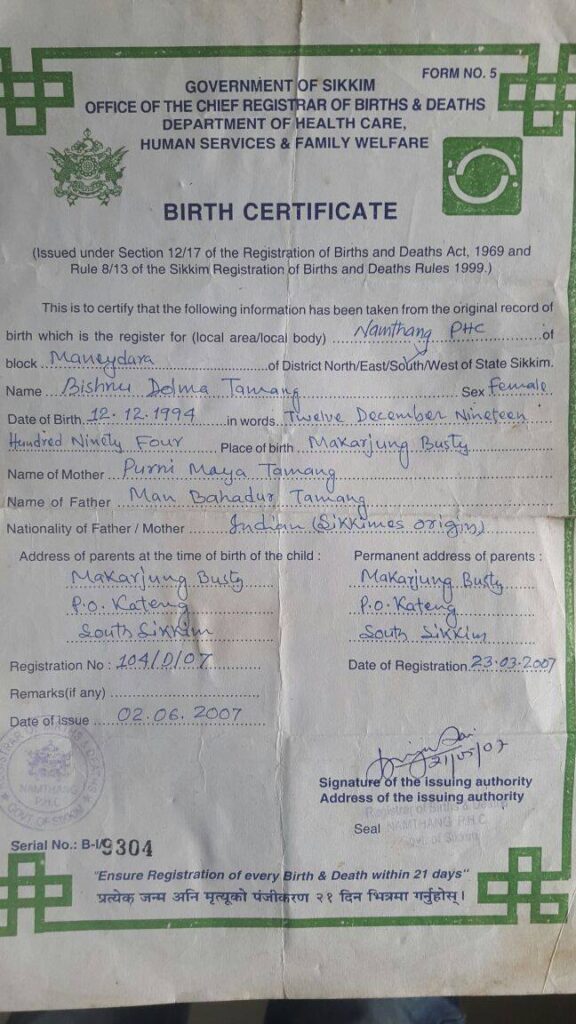 FORM NO. 5
GOVERNMENT OF SIKKIM
OFFICE OF THE CHIEF REGISTRAR OF BIRTHS & DEATHS
DEPARTMENT OF HEALTH CARE,
HUMAN SERVICES & FAMILY WELFARE
BIRTH CERTIFICATE
(Issued under Section 12/17 of the Registration of Births and Deaths Act, 1969 and
Rule 8/13 of the Sikkim Registration of Births and Deaths Rules 1999.)
This is to certify that the following information has been taken from the original record of
birth which is the register for (local area/local body) Namthang PHC of
block Maneydara of District North/East/South/West of State Sikkim.
Name Bishnu Dolma Tamang Sex female
Date of Birth 12.12.1994 in words Twelve December Nineteen
Hundred Ninety Four Place of birth Makarjung Busty
Name of Mother Purni Maya Tamang
Name of Father Man Bahadur Tamang
Nationality of Father / Mother Indian (Sikkimes origin)
Address of parents at the time of birth of the child : Permanent address of parents :
Makarjung Busty Makarjung Busty
P.O. Kateng P.O. Kateng
South Sikkim South Sikkim
Registration No : 104/D/07 Date of Registration 23.03.2007
Remarks(if any)
Date of Issue 02.06.2007
NAMTHANG
P.H.C
GOVT. OF SIKKIM
Signature of the issuing authority
Address of the issuing authority
Registrar of Births & Deaths
Seal NAMTHANG P.H.C.
Govt. of Sikkim
Serial No.: B-I/9304
"Ensure Registration of every Birth & Death within 21 days"
प्रत्येक जन्म अनि मृत्यूको पंजीकरण २१ दिन भित्रमा गर्नुहोस् ।